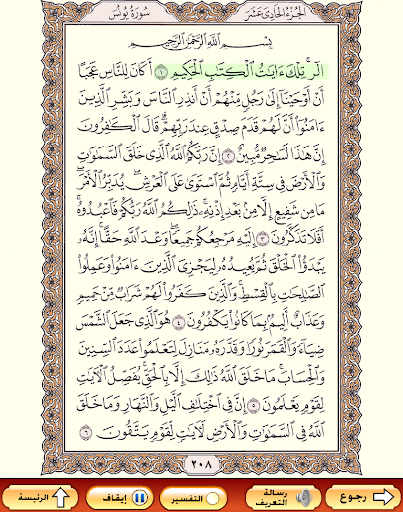 سُورَةُ يُونُسَ
الجُزْءُ الحَادِي عَشَرَ
بِسْمِ اللَّهِ الرَّحْمَٰنِ الرَّحِيمِ
الٓر ۚ تِلْكَ ءَايَٰتُ الْكِتَٰبِ الْحَكِيمِ ١ أَكَانَ لِلنَّاسِ عَجَبًا
أَنْ أَوْحَيْنَا إِلَىٰ رَجُلٍ مِّنْهُمْ أَنْ أَنذِرِ النَّاسَ وَبَشِّرِ الَّذِينَ
ءَامَنُوا أَنَّ لَهُمْ قَدَمَ صِدْقٍ عِندَ رَبِّهِمْ ۗ قَالَ الْكَٰفِرُونَ
إِنَّ هَٰذَا لَسَٰحِرٌ مُّبِينٌ ٢ إِنَّ رَبَّكُمُ اللَّهُ الَّذِي خَلَقَ السَّمَٰوَٰتِ
وَالْأَرْضَ فِي سِتَّةِ أَيَّامٍ ثُمَّ اسْتَوَىٰ عَلَى الْعَرْشِ ۖ يُدَبِّرُ الْأَمْرَ ۖ
مَا مِن شَفِيعٍ إِلَّا مِن بَعْدِ إِذْنِهِ ۚ ذَٰلِكُمُ اللَّهُ رَبُّكُمْ فَاعْبُدُوهُ ۚ
أَفَلَا تَذَكَّرُونَ ٣ إِلَيْهِ مَرْجِعُكُمْ جَمِيعًا ۖ وَعْدَ اللَّهِ حَقًّا ۚ إِنَّهُ
يَبْدَؤُا الْخَلْقَ ثُمَّ يُعِيدُهُ لِيَجْزِيَ الَّذِينَ ءَامَنُوا وَعَمِلُوا
الصَّٰلِحَٰتِ بِالْقِسْطِ ۚ وَالَّذِينَ كَفَرُوا لَهُمْ شَرَابٌ مِّنْ حَمِيمٍ
وَعَذَابٌ أَلِيمٌ بِمَا كَانُوا يَكْفُرُونَ ٤ هُوَ الَّذِي جَعَلَ الشَّمْسَ
ضِيَاءً وَالْقَمَرَ نُورًا وَقَدَّرَهُ مَنَازِلَ لِتَعْلَمُوا عَدَدَ السِّنِينَ
وَالْحِسَابَ ۚ مَا خَلَقَ اللَّهُ ذَٰلِكَ إِلَّا بِالْحَقِّ ۚ يُفَصِّلُ الْءَايَٰتِ
لِقَوْمٍ يَعْلَمُونَ ٥ إِنَّ فِي اخْتِلَٰفِ الَّيْلِ وَالنَّهَارِ وَمَا خَلَقَ
اللَّهُ فِي السَّمَٰوَٰتِ وَالْأَرْضِ لَءَايَٰتٍ لِّقَوْمٍ يَتَّقُونَ ٦
٢٠٨
رجوع
رسالة التعريف
التفسير
إيقاف
الرئيسة